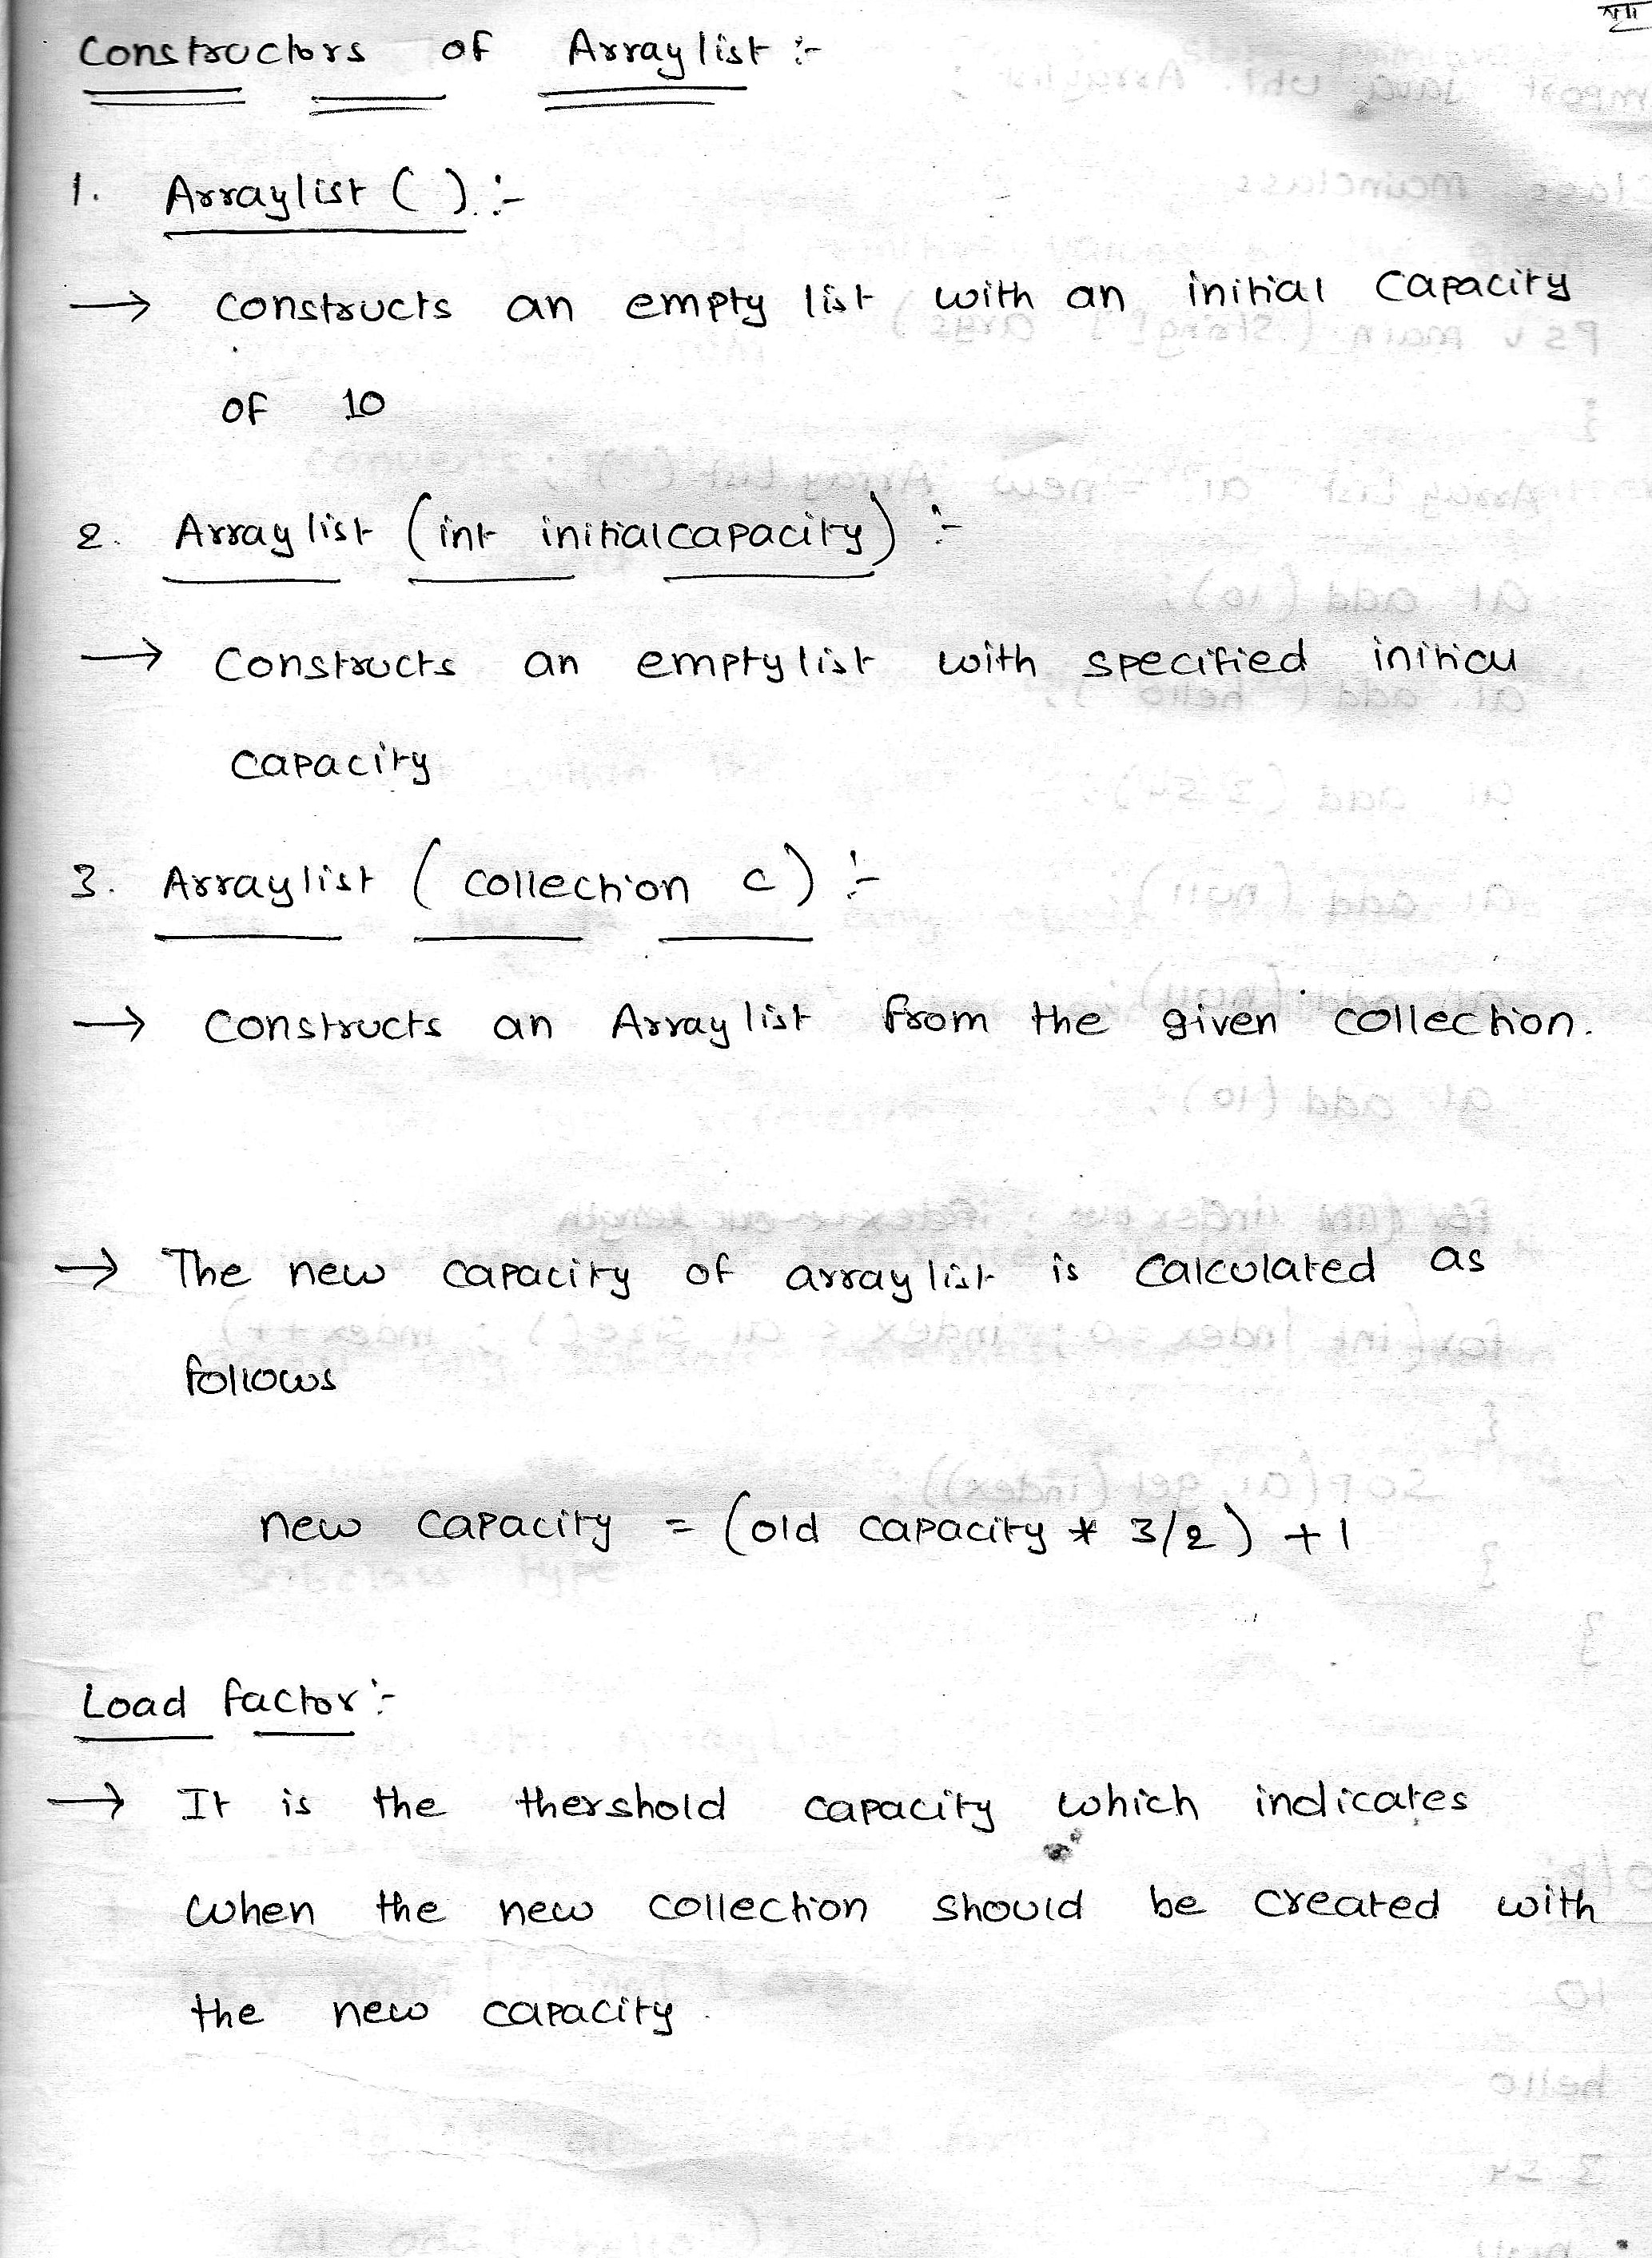 Constructors of Arraylist :-
1. Arraylist ( ) :-
→ constructs an empty list with an initial capacity
of 10
2. Arraylist (int initialcapacity) :-
→ constructs an emptylist with specified initial
capacity
3. Arraylist ( collection c) :-
→ constructs an Arraylist from the given collection.
→ The new capacity of arraylist is calculated as
follows
new capacity = (old capacity * 3/2) +1
Load factor :-
→ It is the thershold capacity which indicates
when the new collection should be created with
the new capacity.